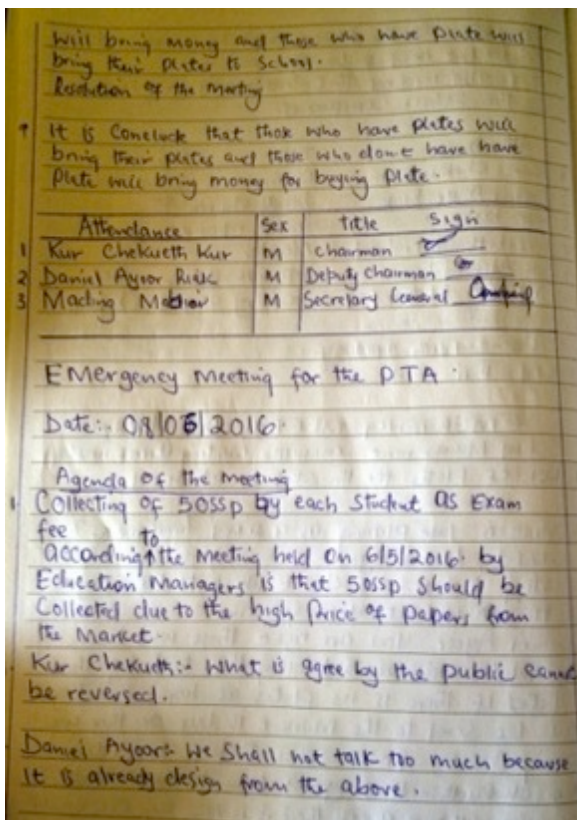 will bring money and those who have plate will
bring their plates to School.
Resolution of the meeting
It is Concluck that those who have plates will
bring their plates and those who don't have have
plate will bring money for buying plate.
Attendance Sex title Sign
1 Kur Chekueth Kur M Chairman
2 Daniel Ayoor Riak M Deputy Chairman
3 Mading M Secretary General
Emergency Meeting for the PTA.
Date:. 08/05/2016.
Agenda of the meeting
1 Collecting of 50SSP by each Student as Exam
fee
according to the Meeting held On 6/5/2016. by
Education Managers is that 50SSP Should be
Collected due to the high Price of papers from
the Market.
Kur Chekueth:- What is agree by the public
be reversed.
Daniel Ayoor:- We Shall not talk too much because
it is already design from the above.